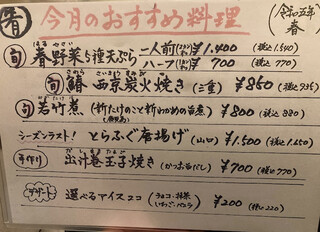 今月のおすすめ料理
(令和五年 春)
旬 春野菜5種天ぷら 一人前 ¥1,400 (税込1,540)
ハーフ ¥700 (税込770)
旬 鰆 西京炭火焼き (三重) ¥850 (税込935)
旬 若竹煮 ¥800 (税込880)
シーズンラスト! とらふぐ唐揚げ (山口) ¥1,500 (税込1,650)
手作り 出汁巻玉子焼き (かつおだし) ¥700 (税込770)
デザート 選べるアイス2コ (チョコ・抹茶 いちご・バニラ) ¥200 (税込220)